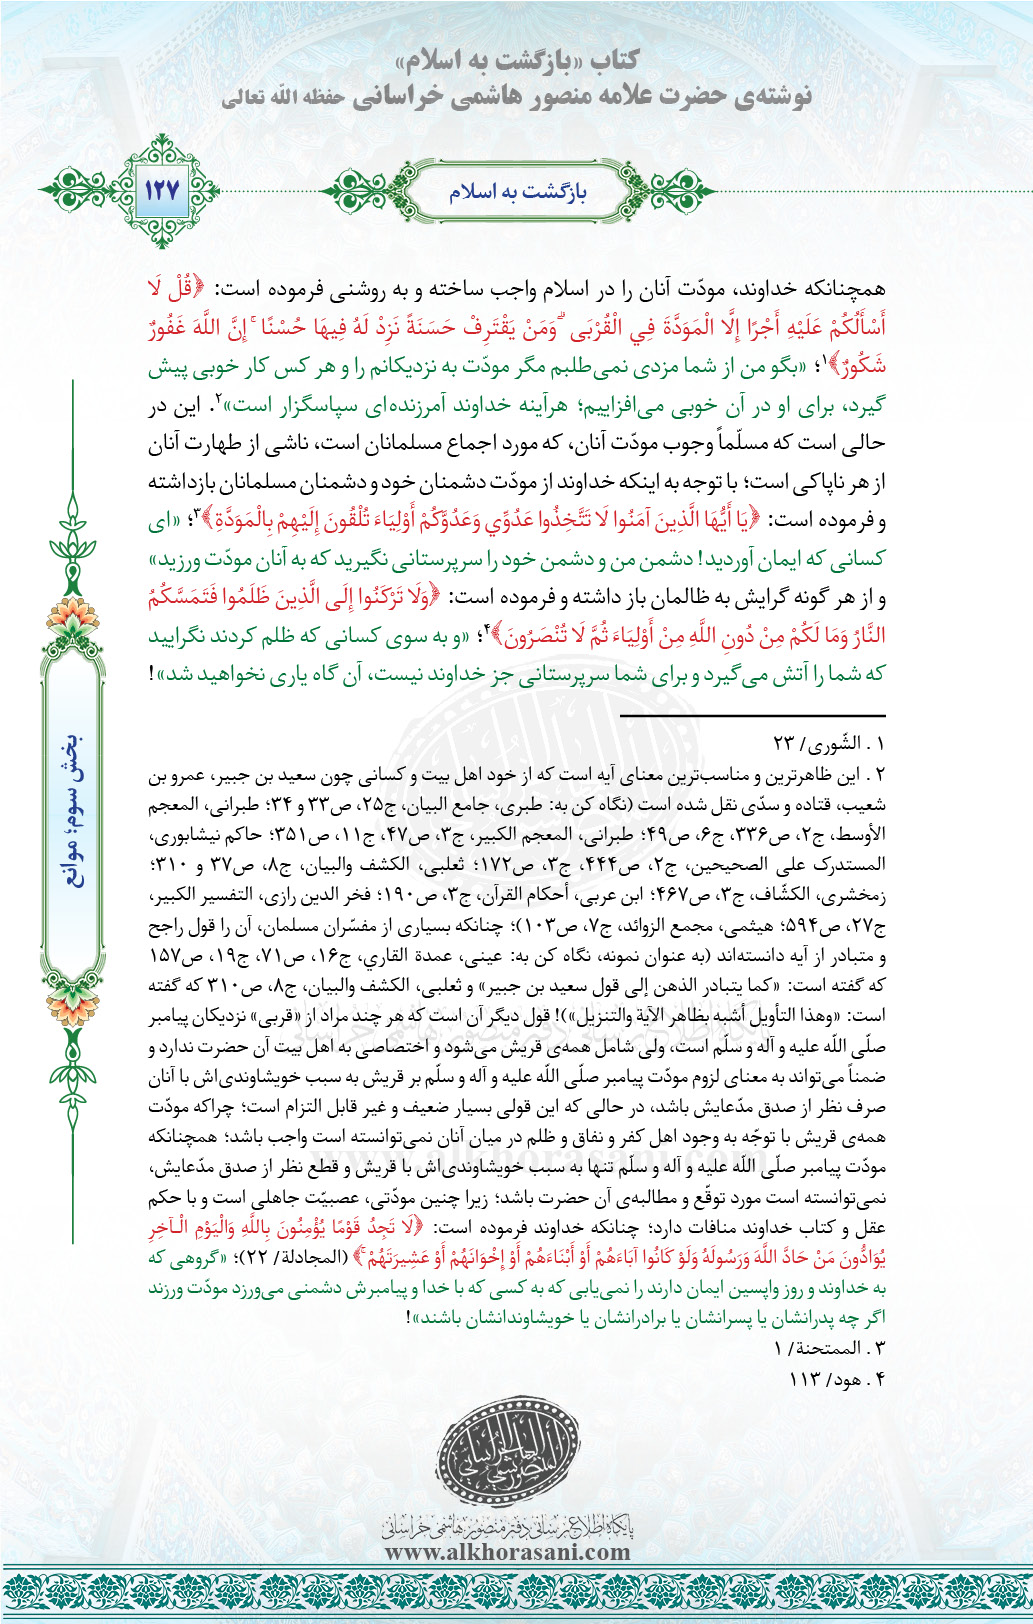 کتاب «بازگشت به اسلام»
نوشته‌ی حضرت علامه منصور هاشمی خراسانی حفظه الله تعالی
بازگشت به اسلام
۱۲۷
همچنانکه خداوند، مودّت آنان را در اسلام واجب ساخته و به روشنی فرموده است: ﴿قُلْ لَا
أَسْأَلُكُمْ عَلَيْهِ أَجْرًا إِلَّا الْمَوَدَّةَ فِي الْقُرْبَى ۗ وَمَنْ يَقْتَرِفْ حَسَنَةً نَزِدْ لَهُ فِيهَا حُسْنًا ۚ إِنَّ اللَّهَ غَفُورٌ
شَكُورٌ﴾۱؛ «بگو من از شما مزدی نمی‌طلبم مگر مودّت به نزدیکانم را و هر کس کار خوبی پیش
گیرد، برای او در آن خوبی می‌افزاییم؛ هرآینه خداوند آمرزنده‌ای سپاسگزار است»۲. این در
حالی است که مسلّماً وجوب مودّت آنان، که مورد اجماع مسلمانان است، ناشی از طهارت آنان
از هر ناپاکی است؛ با توجه به اینکه خداوند از مودّت دشمنان خود و دشمنان مسلمانان بازداشته
و فرموده است: ﴿يَا أَيُّهَا الَّذِينَ آمَنُوا لَا تَتَّخِذُوا عَدُوِّي وَعَدُوَّكُمْ أَوْلِيَاءَ تُلْقُونَ إِلَيْهِمْ بِالْمَوَدَّةِ﴾۳؛ «ای
کسانی که ایمان آوردید! دشمن من و دشمن خود را سرپرستانی نگیرید که به آنان مودّت ورزید»
و از هر گونه گرایش به ظالمان باز داشته و فرموده است: ﴿وَلَا تَرْكَنُوا إِلَى الَّذِينَ ظَلَمُوا فَتَمَسَّكُمُ
النَّارُ وَمَا لَكُمْ مِنْ دُونِ اللَّهِ مِنْ أَوْلِيَاءَ ثُمَّ لَا تُنْصَرُونَ﴾۴؛ «و به سوی کسانی که ظلم کردند نگرایید
که شما را آتش می‌گیرد و برای شما سرپرستانی جز خداوند نیست، آن گاه یاری نخواهید شد»!
۱ . الشّوری/ ۲۳
۲ . این ظاهرترین و مناسب‌ترین معنای آیه است که از خود اهل بیت و کسانی چون سعید بن جبیر، عمرو بن
شعیب، قتاده و سدّی نقل شده است (نگاه کن به: طبری، جامع البیان، ج۲۵، ص۳۳ و ۳۴؛ طبرانی، المعجم
الأوسط، ج۲، ص۳۳۶، ج۶، ص۴۹؛ طبرانی، المعجم الکبیر، ج۳، ص۴۷، ج۱۱، ص۳۵۱؛ حاکم نیشابوری،
المستدرک علی الصحیحین، ج۲، ص۴۴۴، ج۳، ص۱۷۲؛ ثعلبی، الکشف والبیان، ج۸، ص۳۷ و ۳۱۰؛
زمخشری، الکشّاف، ج۳، ص۴۶۷؛ ابن عربی، أحکام القرآن، ج۳، ص۱۹۰؛ فخر الدین رازی، التفسیر الکبیر،
ج۲۷، ص۵۹۴؛ هیثمی، مجمع الزوائد، ج۷، ص۱۰۳)؛ چنانکه بسیاری از مفسّران مسلمان، آن را قول راجح
و متبادر از آیه دانسته‌اند (به عنوان نمونه، نگاه کن به: عینی، عمدة القاري، ج۱۶، ص۷۱، ج۱۹، ص۱۵۷
که گفته است: «کما یتبادر الذهن إلی قول سعید بن جبیر» و ثعلبی، الکشف والبیان، ج۸، ص۳۱۰ که گفته
است: «وهذا التأویل أشبه بظاهر الآیة والتنزیل»)! قول دیگر آن است که هر چند مراد از «قربی» نزدیکان پیامبر
صلّی الله علیه و آله و سلّم است، ولی شامل همه‌ی قریش می‌شود و اختصاصی به اهل بیت آن حضرت ندارد و
ضمناً می‌تواند به معنای لزوم مودّت پیامبر صلّی الله علیه و آله و سلّم بر قریش به سبب خویشاوندی‌اش با آنان
صرف نظر از صدق مدّعایش باشد، در حالی که این قولی بسیار ضعیف و غیر قابل التزام است؛ چراکه مودّت
همه‌ی قریش با توجّه به وجود اهل کفر و نفاق و ظلم در میان آنان نمی‌توانسته است واجب باشد؛ همچنانکه
مودّت پیامبر صلّی الله علیه و آله و سلّم تنها به سبب خویشاوندی‌اش با قریش و قطع نظر از صدق مدّعایش،
نمی‌توانسته است مورد توقّع و مطالبه‌ی آن حضرت باشد؛ زیرا چنین مودّتی، عصبیّت جاهلی است و با حکم
عقل و کتاب خداوند منافات دارد؛ چنانکه خداوند فرموده است: ﴿لَا تَجِدُ قَوْمًا يُؤْمِنُونَ بِاللَّهِ وَالْيَوْمِ الْـآخِرِ
يُوَادُّونَ مَنْ حَادَّ اللَّهَ وَرَسُولَهُ وَلَوْ كَانُوا آبَاءَهُمْ أَوْ أَبْنَاءَهُمْ أَوْ إِخْوَانَهُمْ أَوْ عَشِيرَتَهُمْ ۚ﴾ (المجادلة/ ۲۲)؛ «گروهی که
به خداوند و روز واپسین ایمان دارند را نمی‌یابی که به کسی که با خدا و پیامبرش دشمنی می‌ورزد مودّت ورزند
اگر چه پدرانشان یا پسرانشان یا برادرانشان یا خویشاوندانشان باشند»!
۳ . الممتحنة/ ۱
۴ . هود/ ۱۱۳
بخش سوم؛ موانع
المنصور الهاشمي الخراساني
پایگاه اطلاع‌رسانی دفتر منصور هاشمی خراسانی
www.alkhorasani.com